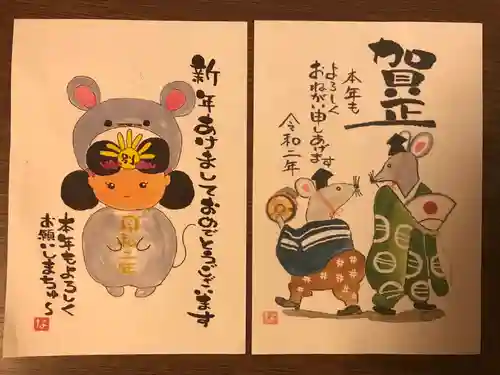 新年あけましておめでとうございます
本年もよろしく
お願いしまちゅ～
令和二年
な
賀正
本年も
よろしく
おねがい申しあげます
令和二年
な